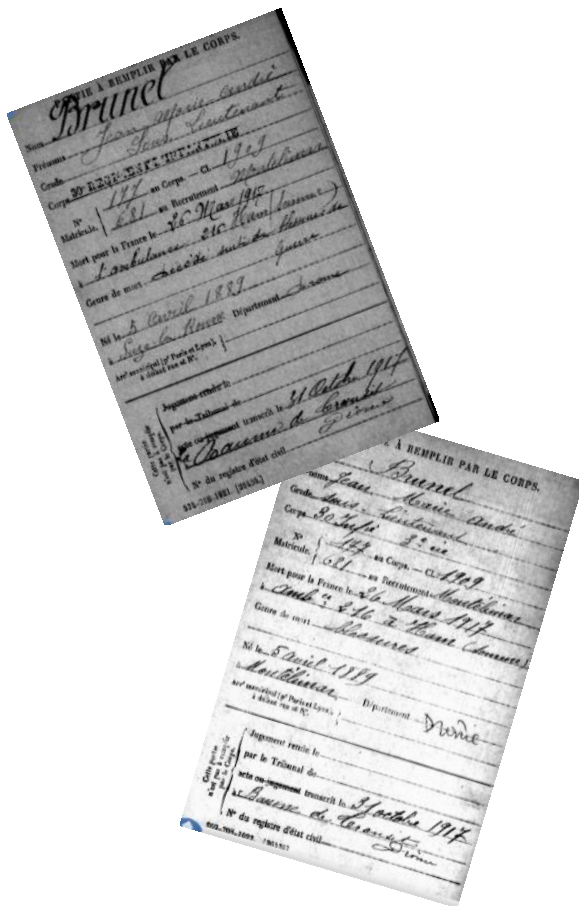 PARTIE À REMPLIR PAR LE CORPS.
Nom Brunel
Prénoms Jean Marie André
Grade Sous Lieutenant
Corps 30e REGIMENT D'INFANTERIE
N° 147 au Corps. — Cl. 1909
Matricule. 681 au Recrutement Montélimar
Mort pour la France le 26 Mars 1917
à l'ambulance 216 Ham (Somme)
Genre de mort Décédé suite de blessures de
guerre
Né le 5 avril 1889
à Suze la Rousse Département Drome
Arrt municipal (pr Paris et Lyon),
à défaut rue et N°.
Cette partie
n'est pas à remplir
par le Corps.
Jugement rendu le
par le Tribunal de
acte ou jugement transcrit le 31 Octobre 1917
à la Baume de Transit
Drome
N° du registre d'état civil
À REMPLIR PAR LE CORPS.
Brunel
Jean Marie André
Grade Sous-Lieutenant
Corps 30 Infie
N° 147 au Corps. — Cl. 1909
Matricule. 681 au Recrutement Montélimar
Mort pour la France le 26 Mars 1917
à amb ce 216 à Ham (Somme)
Genre de mort blessures
Né le 5 avril 1889
à Montélimar Département Drome
Arrt municipal (pr Paris et Lyon),
à défaut rue et N°.
Cette partie
n'est pas à remplir
par le Corps.
Jugement rendu le
par le Tribunal de
acte ou jugement transcrit le 31 octobre 1917
à Baume de Transit
Drome
N° du registre d'état civil